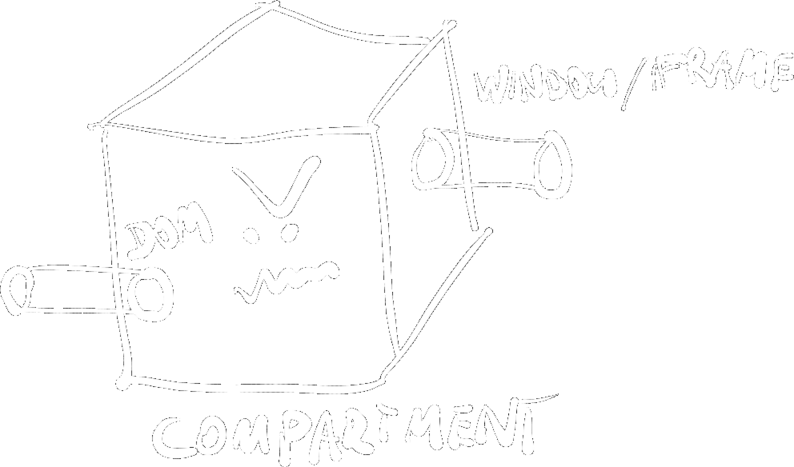 WINDOW/FRAME
DOM
COMPARTMENT